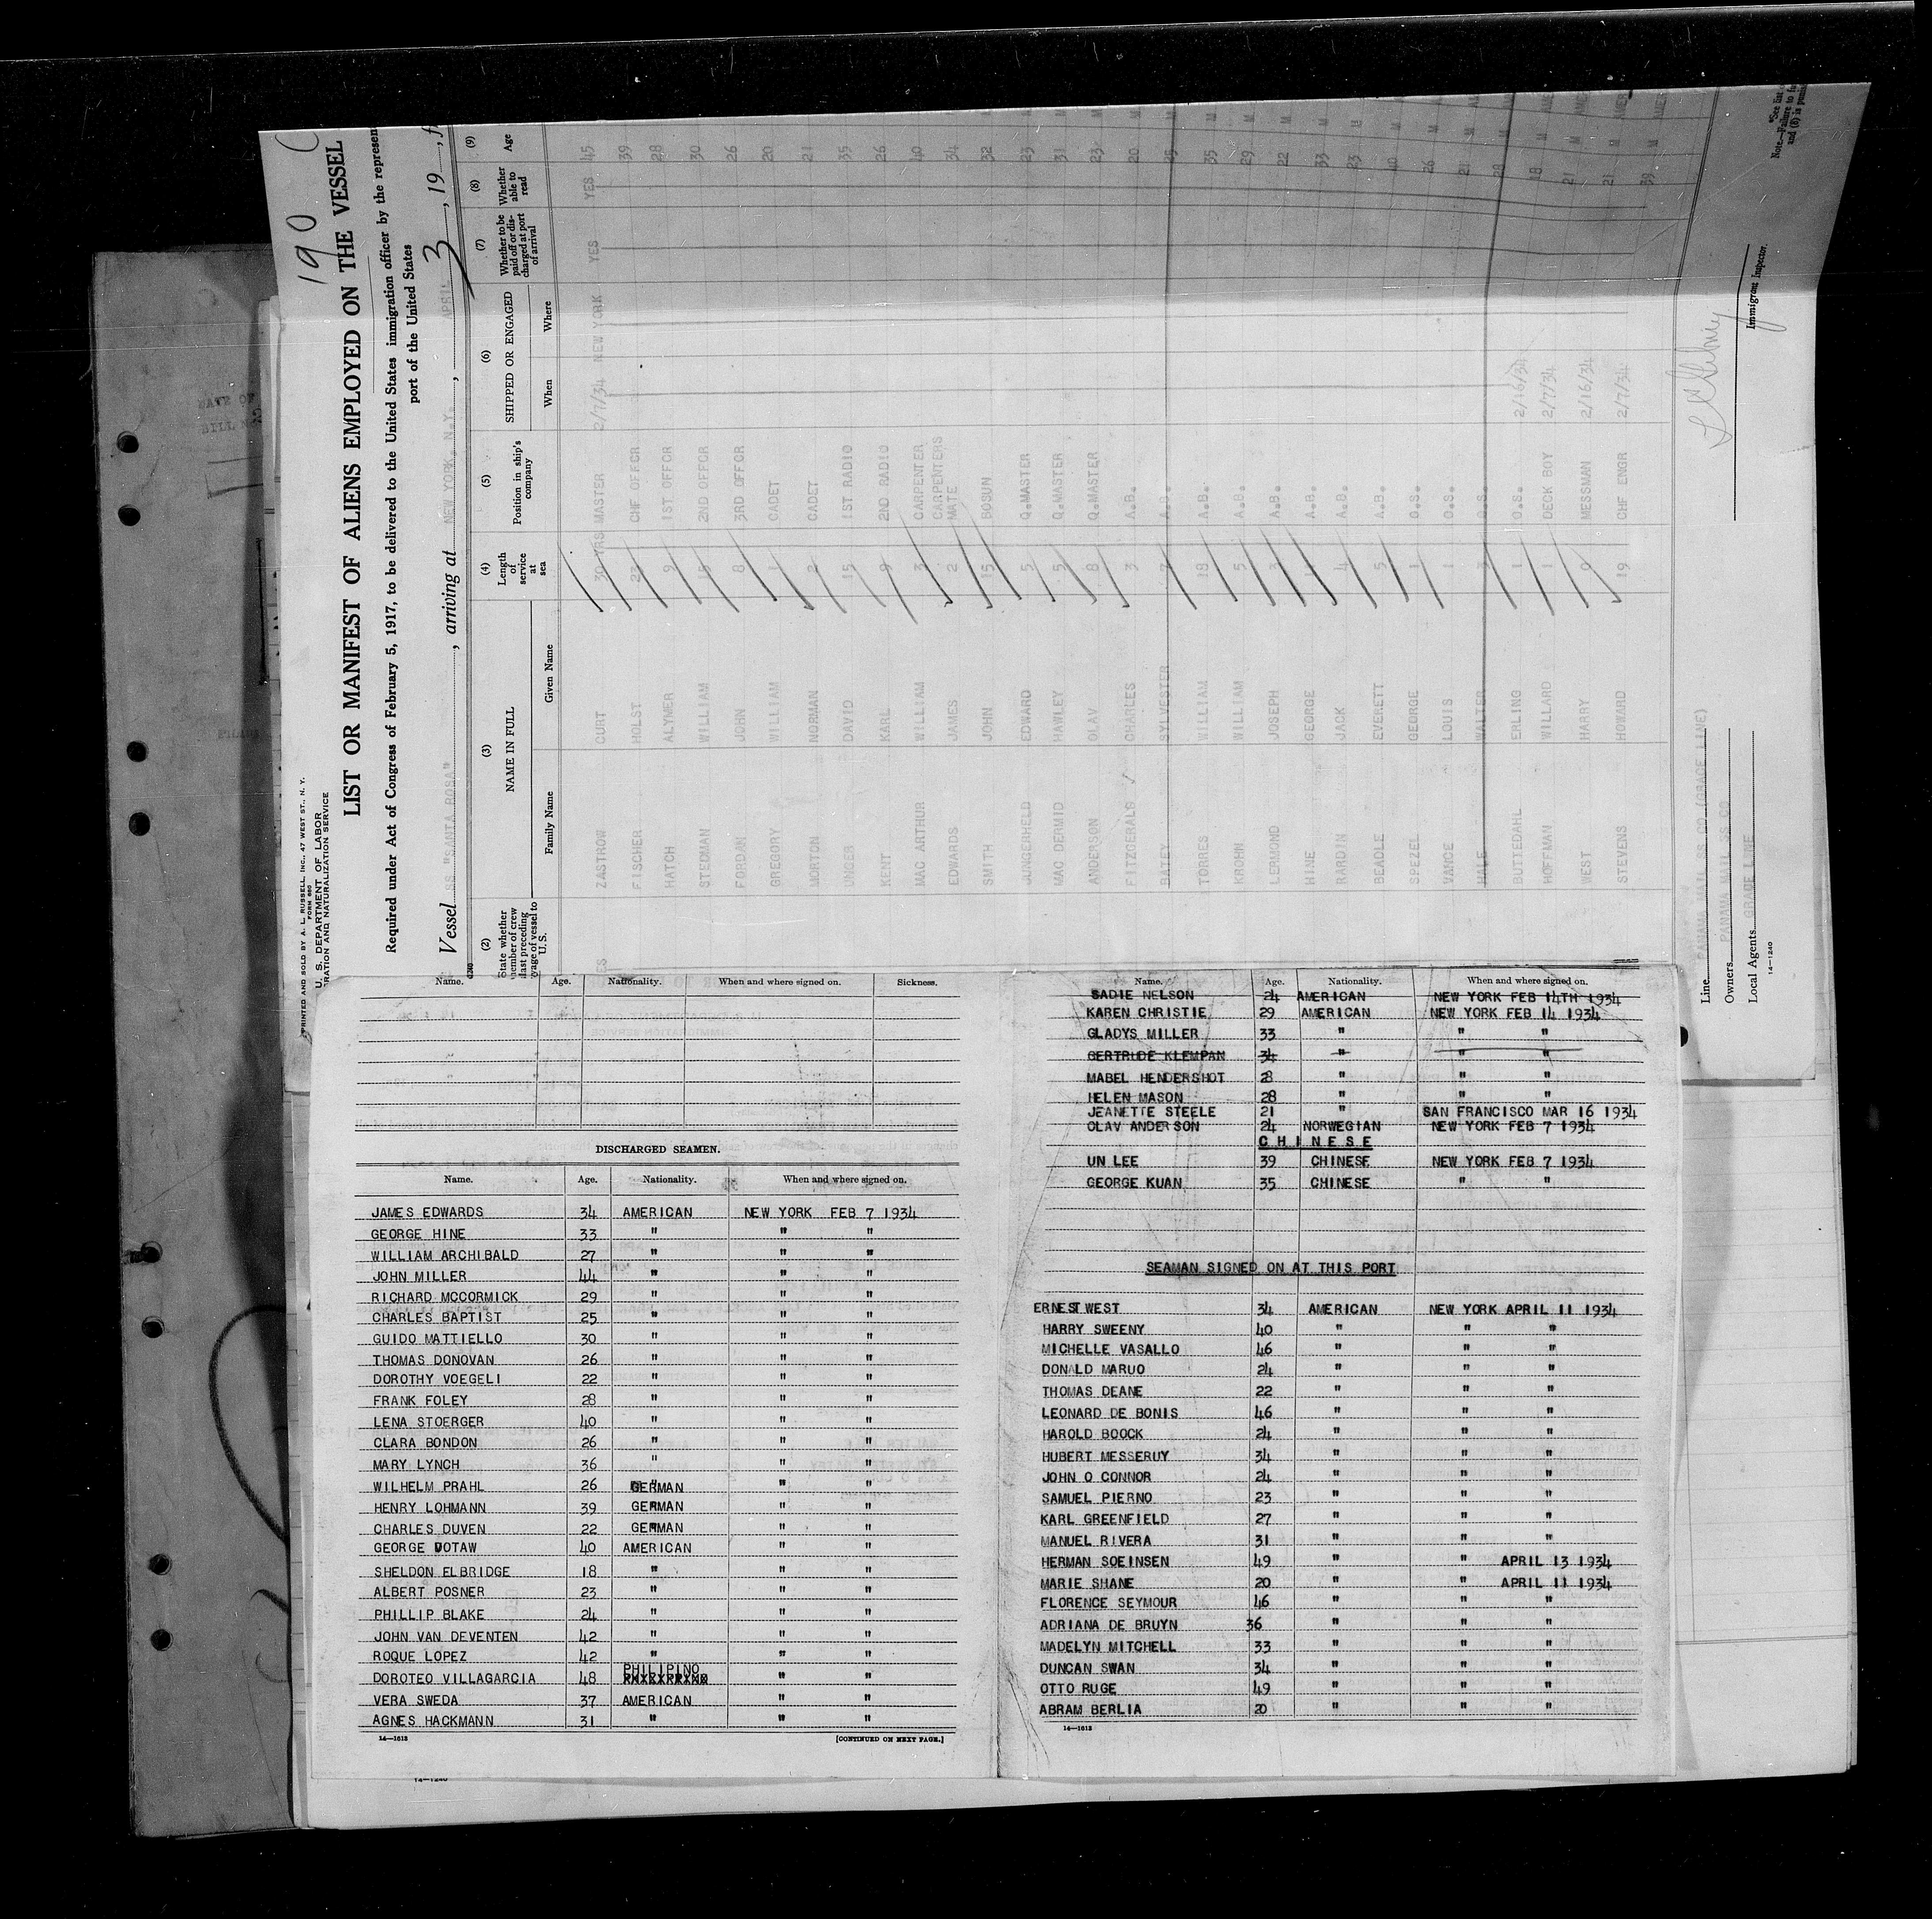 190
PRINTED AND SOLD BY A. L. RUSSELL, INC., 47 WEST ST., N. Y.
FORM 680
U. S. DEPARTMENT OF LABOR
RATION AND NATURALIZATION SERVICE
LIST OR MANIFEST OF ALIENS EMPLOYED ON THE VESSEL
Required under Act of Congress of February 5, 1917, to be delivered to the United States immigration officer by the represen
port of the United States
Vessel SS "SANTA ROSA", arriving at NEW YORK. N.Y., APRIL 3, 19
(2) (3) (4) (5) (6) (7) (8) (9)
State whether member of crew last preceding voyage of vessel to U. S.
NAME IN FULL
Family Name Given Name
Length of service at sea
Position in ship's company
SHIPPED OR ENGAGED
When Where
Whether to be paid off or discharged at port of arrival
Whether able to read
Age
ZASTROW CURT 30 YRS MASTER 2/7/34 NEW YORK YES YES 45
FISCHER HOLST 23 CHF OFFCR 39
HATCH ALYMER 9 1ST OFFCR 28
STEDMAN WILLIAM 15 2ND OFFCR 30
FORDAN JOHN 8 3RD OFFCR 26
GREGORY WILLIAM 1 CADET 20
MORTON NORMAN 2 CADET 21
UNGER DAVID 15 1ST RADIO 35
KENT KARL 9 2ND RADIO 26
MAC ARTHUR WILLIAM 3 CARPENTER 40
EDWARDS JAMES 2 CARPENTERS MATE 34
SMITH JOHN 15 BOSUN 32
JUNGENHELD EDWARD 5 Q.MASTER 23 M
MAC DERMID HAWLEY 5 Q.MASTER 31 M
ANDERSON OLAV 8 Q.MASTER 23 M
FITZGERALS CHARLES 3 A.B. 20 M
BATEY SYLVESTER 7 A.B. 25 M
TORRES WILLIAM 18 A.B. 35 M
KROHN WILLIAM 5 A.B. 29 M
LERMOND JOSEPH 3 A.B. 22 M
HINE GEORGE A.B. 33 M
RARDIN JACK 4 A.B. 23 M
BEADLE EVERETT 5 A.B. 40 M
SPEZEL GEORGE 1 O.S. 26 M
VANCE LOUIS 1 O.S. 21 M
HALE WALTER 3 O.S. 28 M
BUTTEDAHL ERLING 1 O.S. 2/16/34 18 M
HOFFMAN WILLARD 1 DECK BOY 2/7/34 21 M
WEST HARRY 0 MESSMAN 2/16/34 21 M
STEVENS HOWARD 19 CHF ENGR 2/7/34 39 M
Line PANAMA MAIL SS CO (GRACE LINE)
Owners PANAMA MAIL SS CO
Local Agents GRACE LINE
14—1240
Immigrant Inspector.
Name. Age. Nationality. When and where signed on. Sickness.
DISCHARGED SEAMEN.
Name. Age. Nationality. When and where signed on.
JAMES EDWARDS 34 AMERICAN NEW YORK FEB 7 1934
GEORGE HINE 33 " " "
WILLIAM ARCHIBALD 27 " " "
JOHN MILLER 44 " " "
RICHARD MCCORMICK 29 " " "
CHARLES BAPTIST 25 " " "
GUIDO MATTIELLO 30 " " "
THOMAS DONOVAN 26 " " "
DOROTHY VOEGELI 22 " " "
FRANK FOLEY 28 " " "
LENA STOERGER 40 " " "
CLARA BONDON 26 " " "
MARY LYNCH 36 " " "
WILHELM PRAHL 26 GERMAN " "
HENRY LOHMANN 39 GERMAN " "
CHARLES DUVEN 22 GERMAN " "
GEORGE VOTAW 40 AMERICAN " "
SHELDON ELBRIDGE 18 " " "
ALBERT POSNER 23 " " "
PHILLIP BLAKE 24 " " "
JOHN VAN DEVENTEN 42 " " "
ROQUE LOPEZ 42 " " "
DOROTEO VILLAGARCIA 48 PHILIPINO " "
VERA SWEDA 37 AMERICAN " "
AGNES HACKMANN 31 " " "
14—1613 [CONTINUED ON NEXT PAGE.]
Name. Age. Nationality. When and where signed on.
SADIE NELSON 24 AMERICAN NEW YORK FEB 14TH 1934
KAREN CHRISTIE 29 AMERICAN NEW YORK FEB 14 1934
GLADYS MILLER 33 " " "
GERTRUDE KLEMPAN 34 " " "
MABEL HENDERSHOT 28 " " "
HELEN MASON 28 " " "
JEANETTE STEELE 21 " SAN FRANCISCO MAR 16 1934
OLAV ANDERSON 24 NORWEGIAN NEW YORK FEB 7 1934
CHINESE
UN LEE 39 CHINESE NEW YORK FEB 7 1934
GEORGE KUAN 35 CHINESE " "
SEAMAN SIGNED ON AT THIS PORT
ERNEST WEST 34 AMERICAN NEW YORK APRIL 11 1934
HARRY SWEENY 40 " " "
MICHELLE VASALLO 46 " " "
DONALD MARUO 24 " " "
THOMAS DEANE 22 " " "
LEONARD DE BONIS 46 " " "
HAROLD BOOCK 24 " " "
HUBERT MESSERUY 34 " " "
JOHN O CONNOR 24 " " "
SAMUEL PIERNO 23 " " "
KARL GREENFIELD 27 " " "
MANUEL RIVERA 31 " " "
HERMAN SOEINSEN 49 " " APRIL 13 1934
MARIE SHANE 20 " " APRIL 11 1934
FLORENCE SEYMOUR 46 " " "
ADRIANA DE BRUYN 36 " " "
MADELYN MITCHELL 33 " " "
DUNCAN SWAN 34 " " "
OTTO RUGE 49 " " "
ABRAM BERLIA 20 " " "
14—1613
14—1240